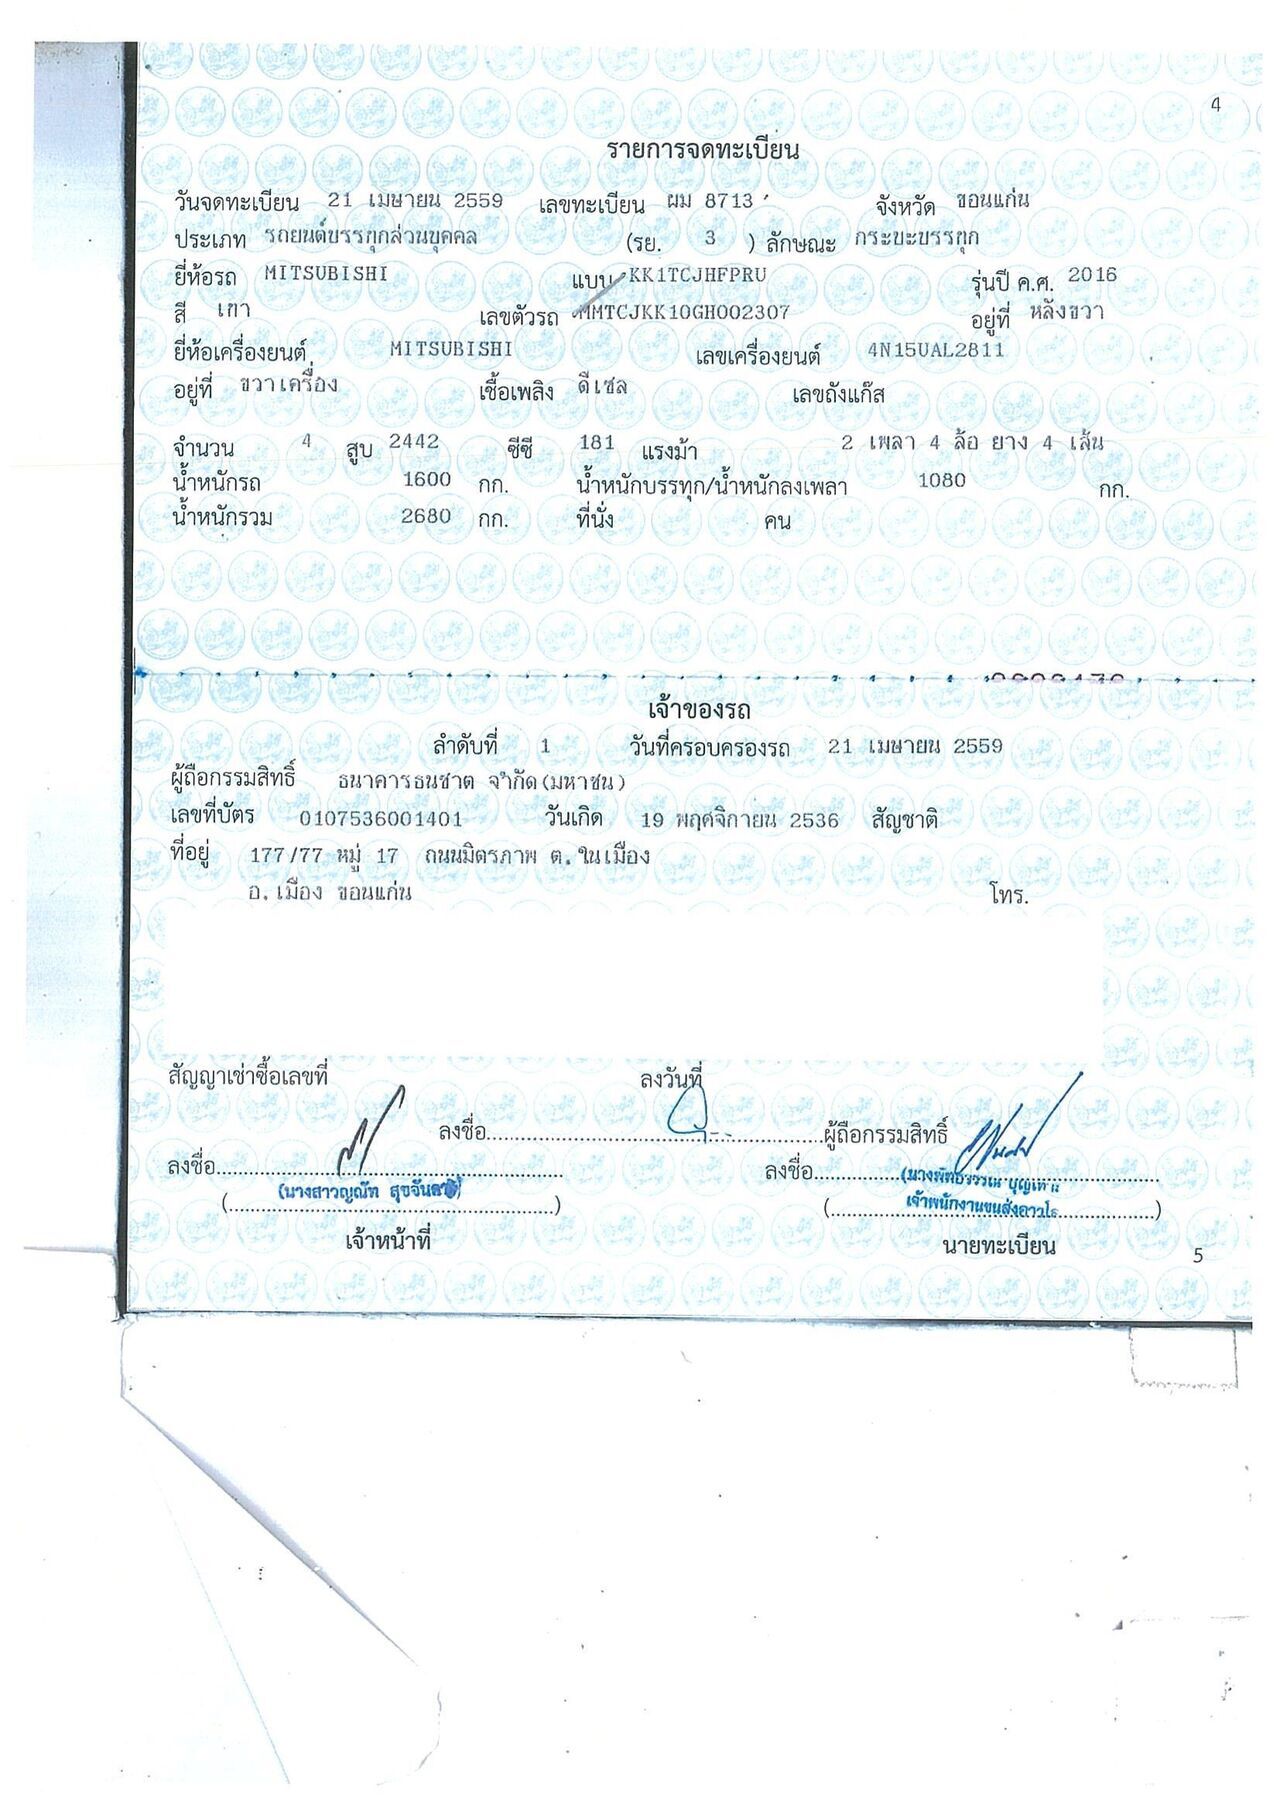 4
รายการจดทะเบียน
วันจดทะเบียน 21 เมษายน 2559 เลขทะเบียน ผม 8713 จังหวัด ขอนแก่น
ประเภท รถยนต์บรรทุกส่วนบุคคล (รย. 3 ) ลักษณะ กระบะบรรทุก
ยี่ห้อรถ MITSUBISHI แบบ KK1TCJHFPRU รุ่นปี ค.ศ. 2016
สี เทา เลขตัวรถ MMTCJKK10GH002307 อยู่ที่ หลังขวา
ยี่ห้อเครื่องยนต์ MITSUBISHI เลขเครื่องยนต์ 4N15UAL2811
อยู่ที่ ขวาเครื่อง เชื้อเพลิง ดีเซล เลขถังแก๊ส
จำนวน 4 สูบ 2442 ซีซี 181 แรงม้า 2 เพลา 4 ล้อ ยาง 4 เส้น
น้ำหนักรถ 1600 กก. น้ำหนักบรรทุก/น้ำหนักลงเพลา 1080 กก.
น้ำหนักรวม 2680 กก. ที่นั่ง คน
เจ้าของรถ
ลำดับที่ 1 วันที่ครอบครองรถ 21 เมษายน 2559
ผู้ถือกรรมสิทธิ์ ธนาคารธนชาต จำกัด(มหาชน)
เลขที่บัตร 0107536001401 วันเกิด 19 พฤศจิกายน 2536 สัญชาติ
ที่อยู่ 177/77 หมู่ 17 ถนนมิตรภาพ ต.ในเมือง
อ.เมือง ขอนแก่น โทร.
สัญญาเช่าซื้อเลขที่ ลงวันที่
ลงชื่อ..........ผู้ถือกรรมสิทธิ์
ลงชื่อ.......... ลงชื่อ..........
(นางสาวญณัท
เจ้าหน้าที่ นายทะเบียน
5